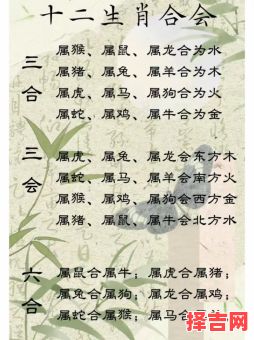 十二生肖合会
三合
属猴、属鼠、属龙合为水
属猪、属兔、属羊合为木
属虎、属马、属狗合为火
属蛇、属鸡、属牛合为金
三会
属虎、属兔、属龙会东方木
属蛇、属马、属羊会南方火
属猴、属鸡、属狗会西方金
属猪、属鼠、属牛会北方水
六合
属鼠合属牛；属虎合属猪；
属兔合属狗；属龙合属鸡；
属蛇合属猴；属马合
择吉网